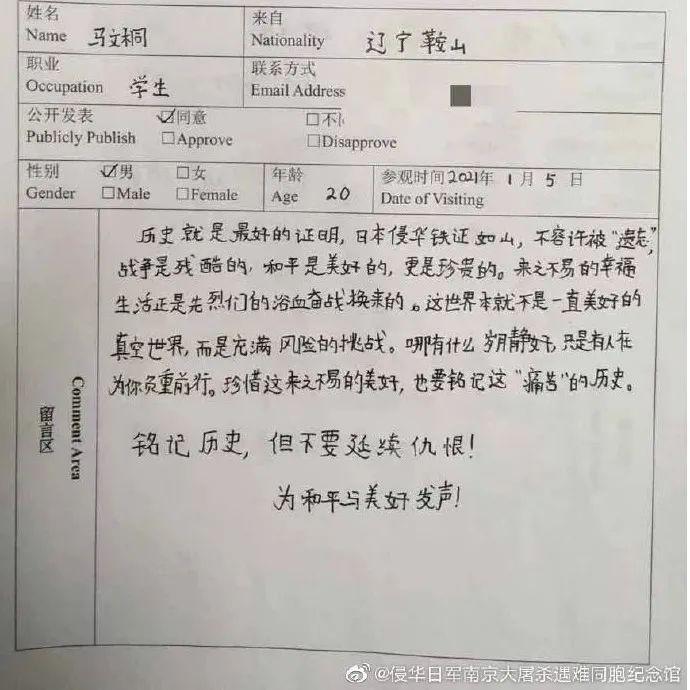 姓名 来自
Name 马文桐 Nationality 辽宁鞍山
职业 联系方式
Occupation 学生 Email Address
公开发表 ☑同意 □不
Publicly Publish □Approve □Disapprove
性别 ☑男 □女 年龄 参观时间2021年 1月 5日
Gender □Male □Female Age 20 Date of Visiting
留言区 Comment Area
历史就是最好的证明，日本侵华铁证如山，不容许被“遗忘”，
战争是残酷的，和平是美好的，更是珍贵的。来之不易的幸福
生活正是先烈们的浴血奋战换来的。这世界本就不是一直美好的
真空世界，而是充满风险的挑战。哪有什么岁月静好，只是有人在
为你负重前行。珍惜这来之不易的美好，也要铭记这“痛苦”的历史。
铭记历史，但不要延续仇恨！
为和平与美好发声！
@侵华日军南京大屠杀遇难同胞纪念馆